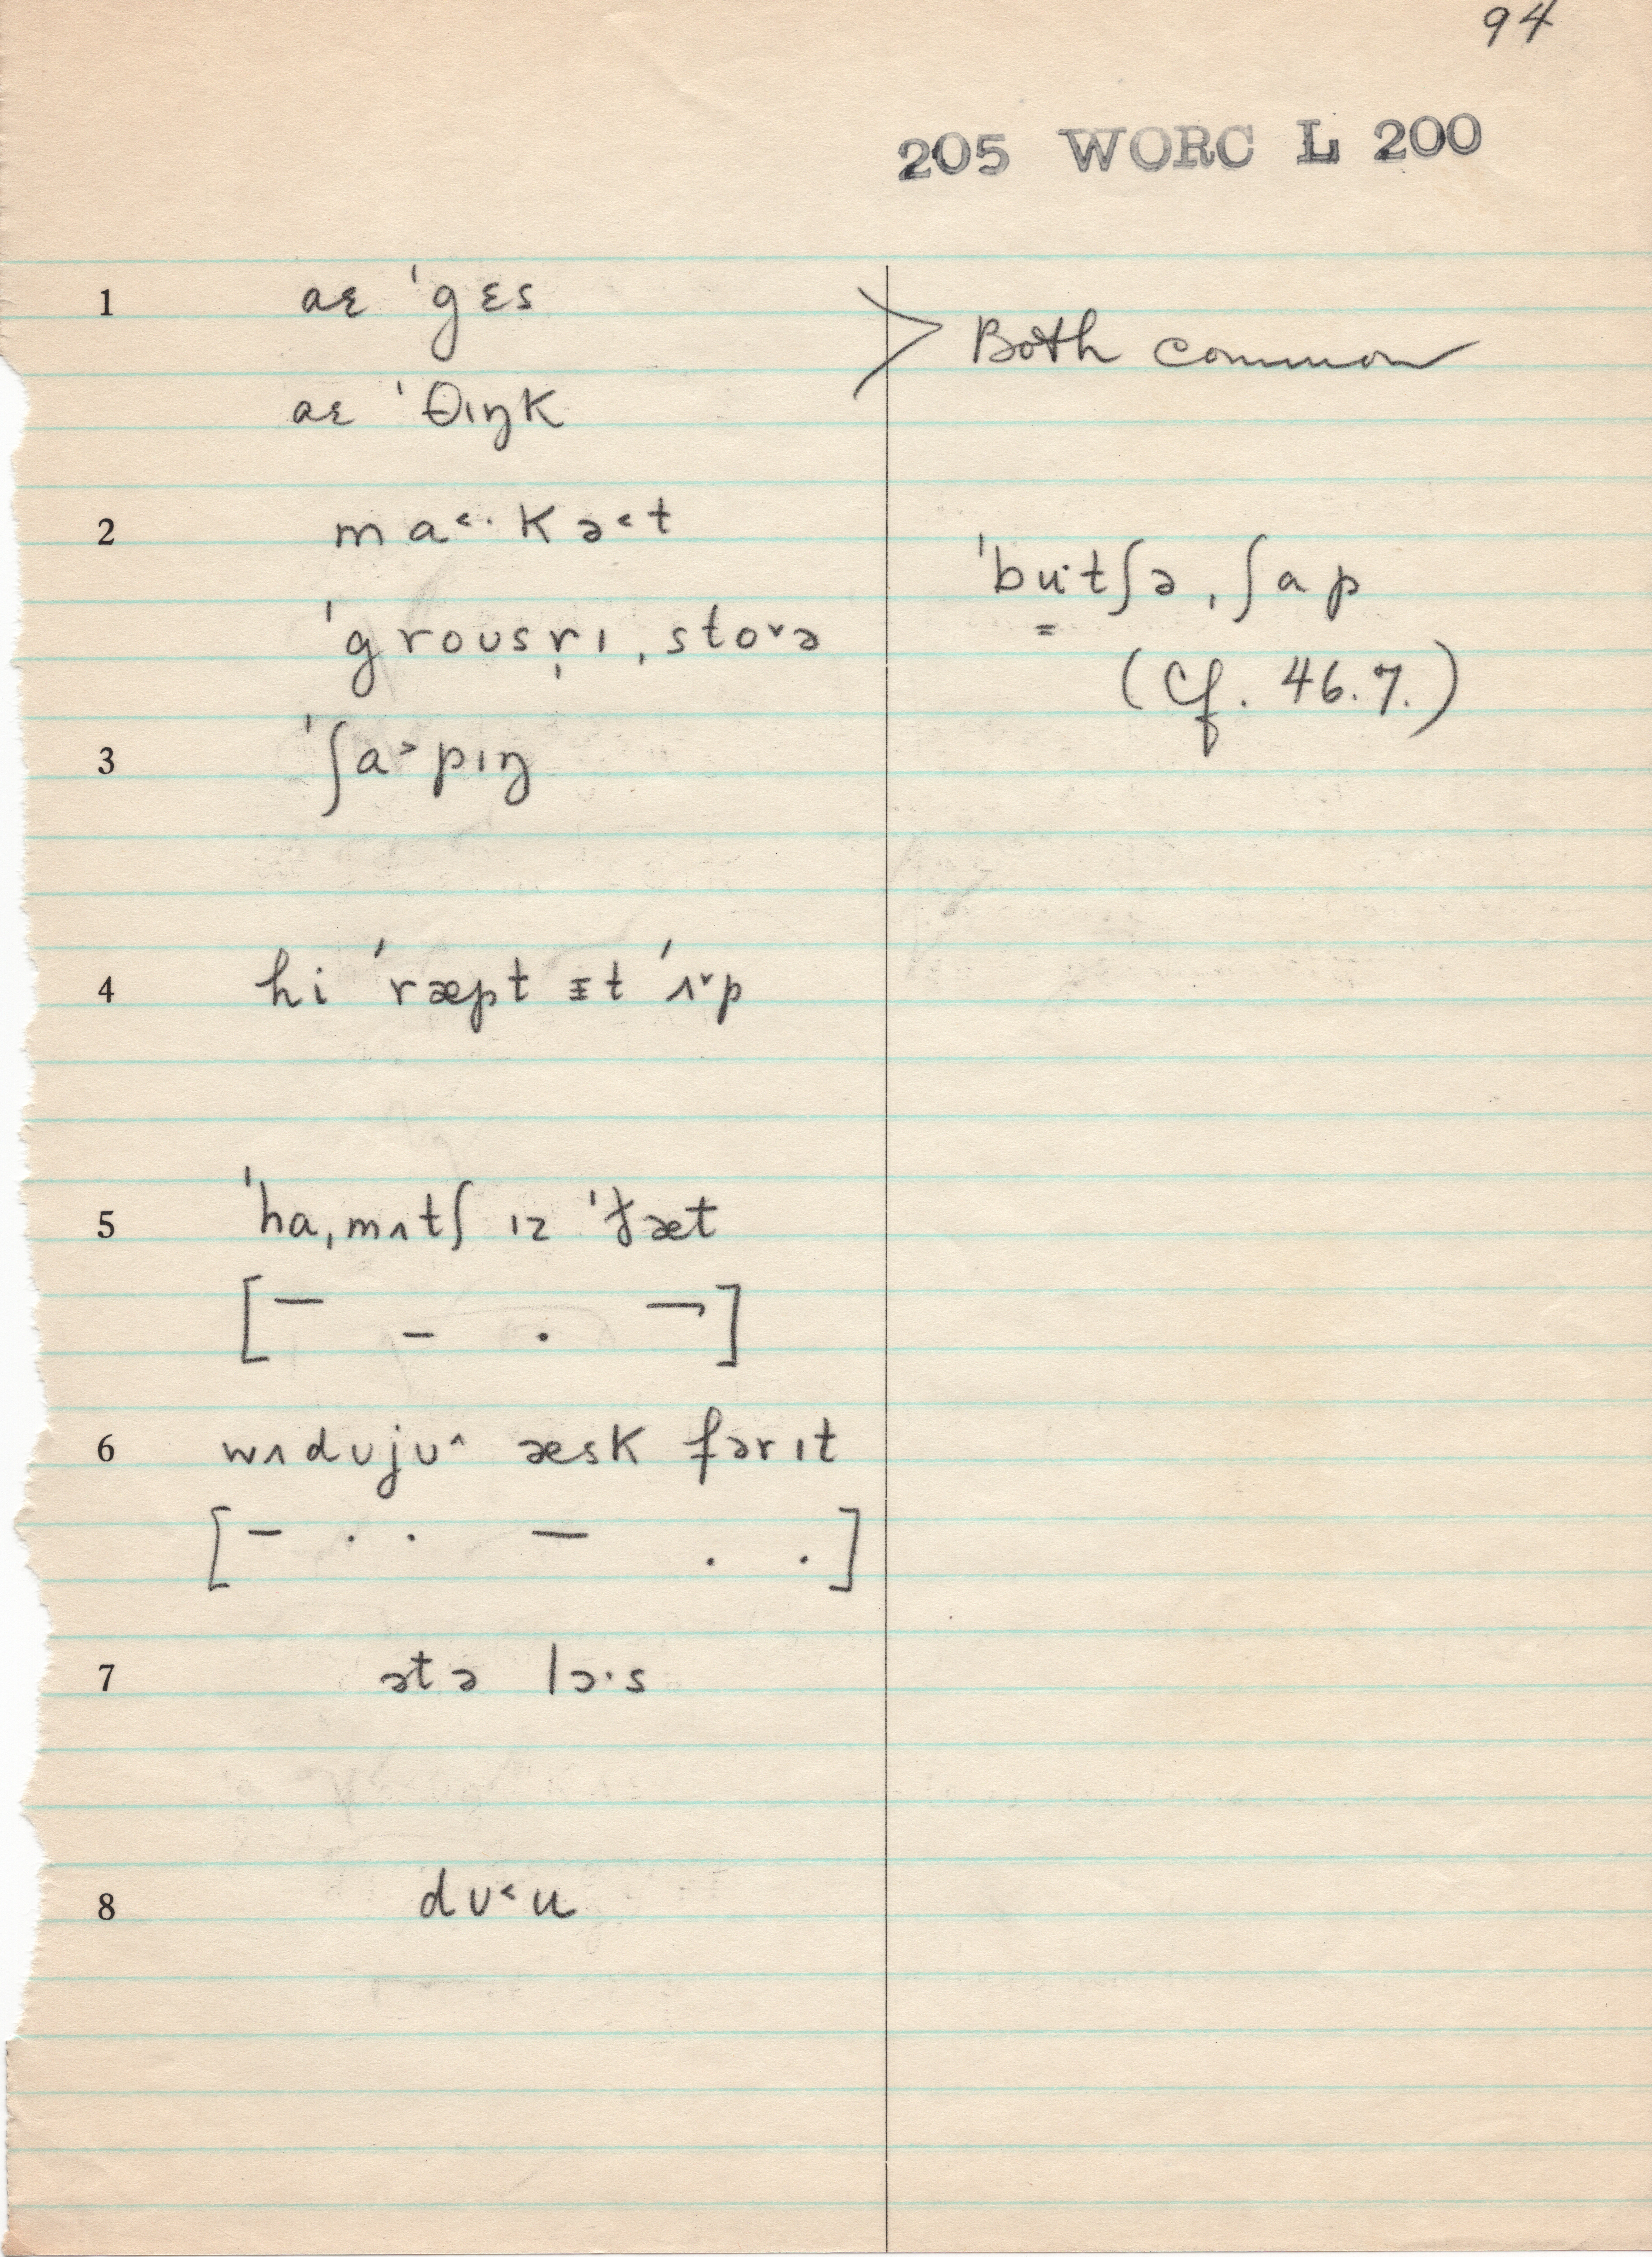 94
205 WORC L 200
1 aɛ ˈgɛs
aɛ ˈθɪŋk
Both common
2 ma˂·kə˂t
ˈbu·tʃəˌʃap
ˈgroʊsr̩ɪˌsto˅ə
(Cf. 46.7.)
3 ˈʃa˃pɪŋ
4 hi ˈræpt ɪt ˈʌ˅p
5 ˈhaˌmʌtʃ ɪz ˈðæt
[– – . ¬]
6 wʌdʊjʊ˄ æsk fərɪt
[– . . – . .]
7 ətə lɔ·s
8 dʊ˂u